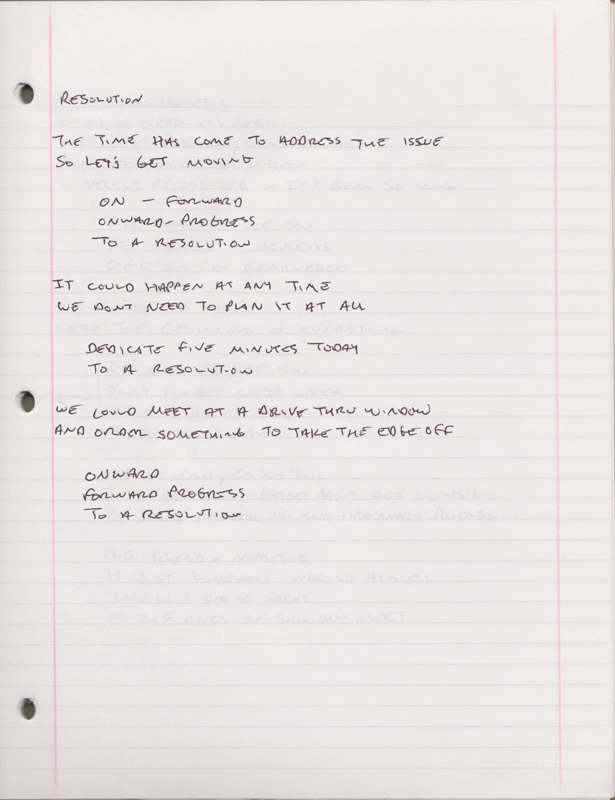 RESOLUTION
THE TIME HAS COME TO ADDRESS THE ISSUE
SO LET'S GET MOVING
ON - FORWARD
ONWARD - PROGRESS
TO A RESOLUTION
IT COULD HAPPEN AT ANY TIME
WE DON'T NEED TO PLAN IT AT ALL
DEDICATE FIVE MINUTES TODAY
TO A RESOLUTION
WE COULD MEET AT A DRIVE THRU WINDOW
AND ORDER SOMETHING TO TAKE THE EDGE OFF
ONWARD
FORWARD PROGRESS
TO A RESOLUTION